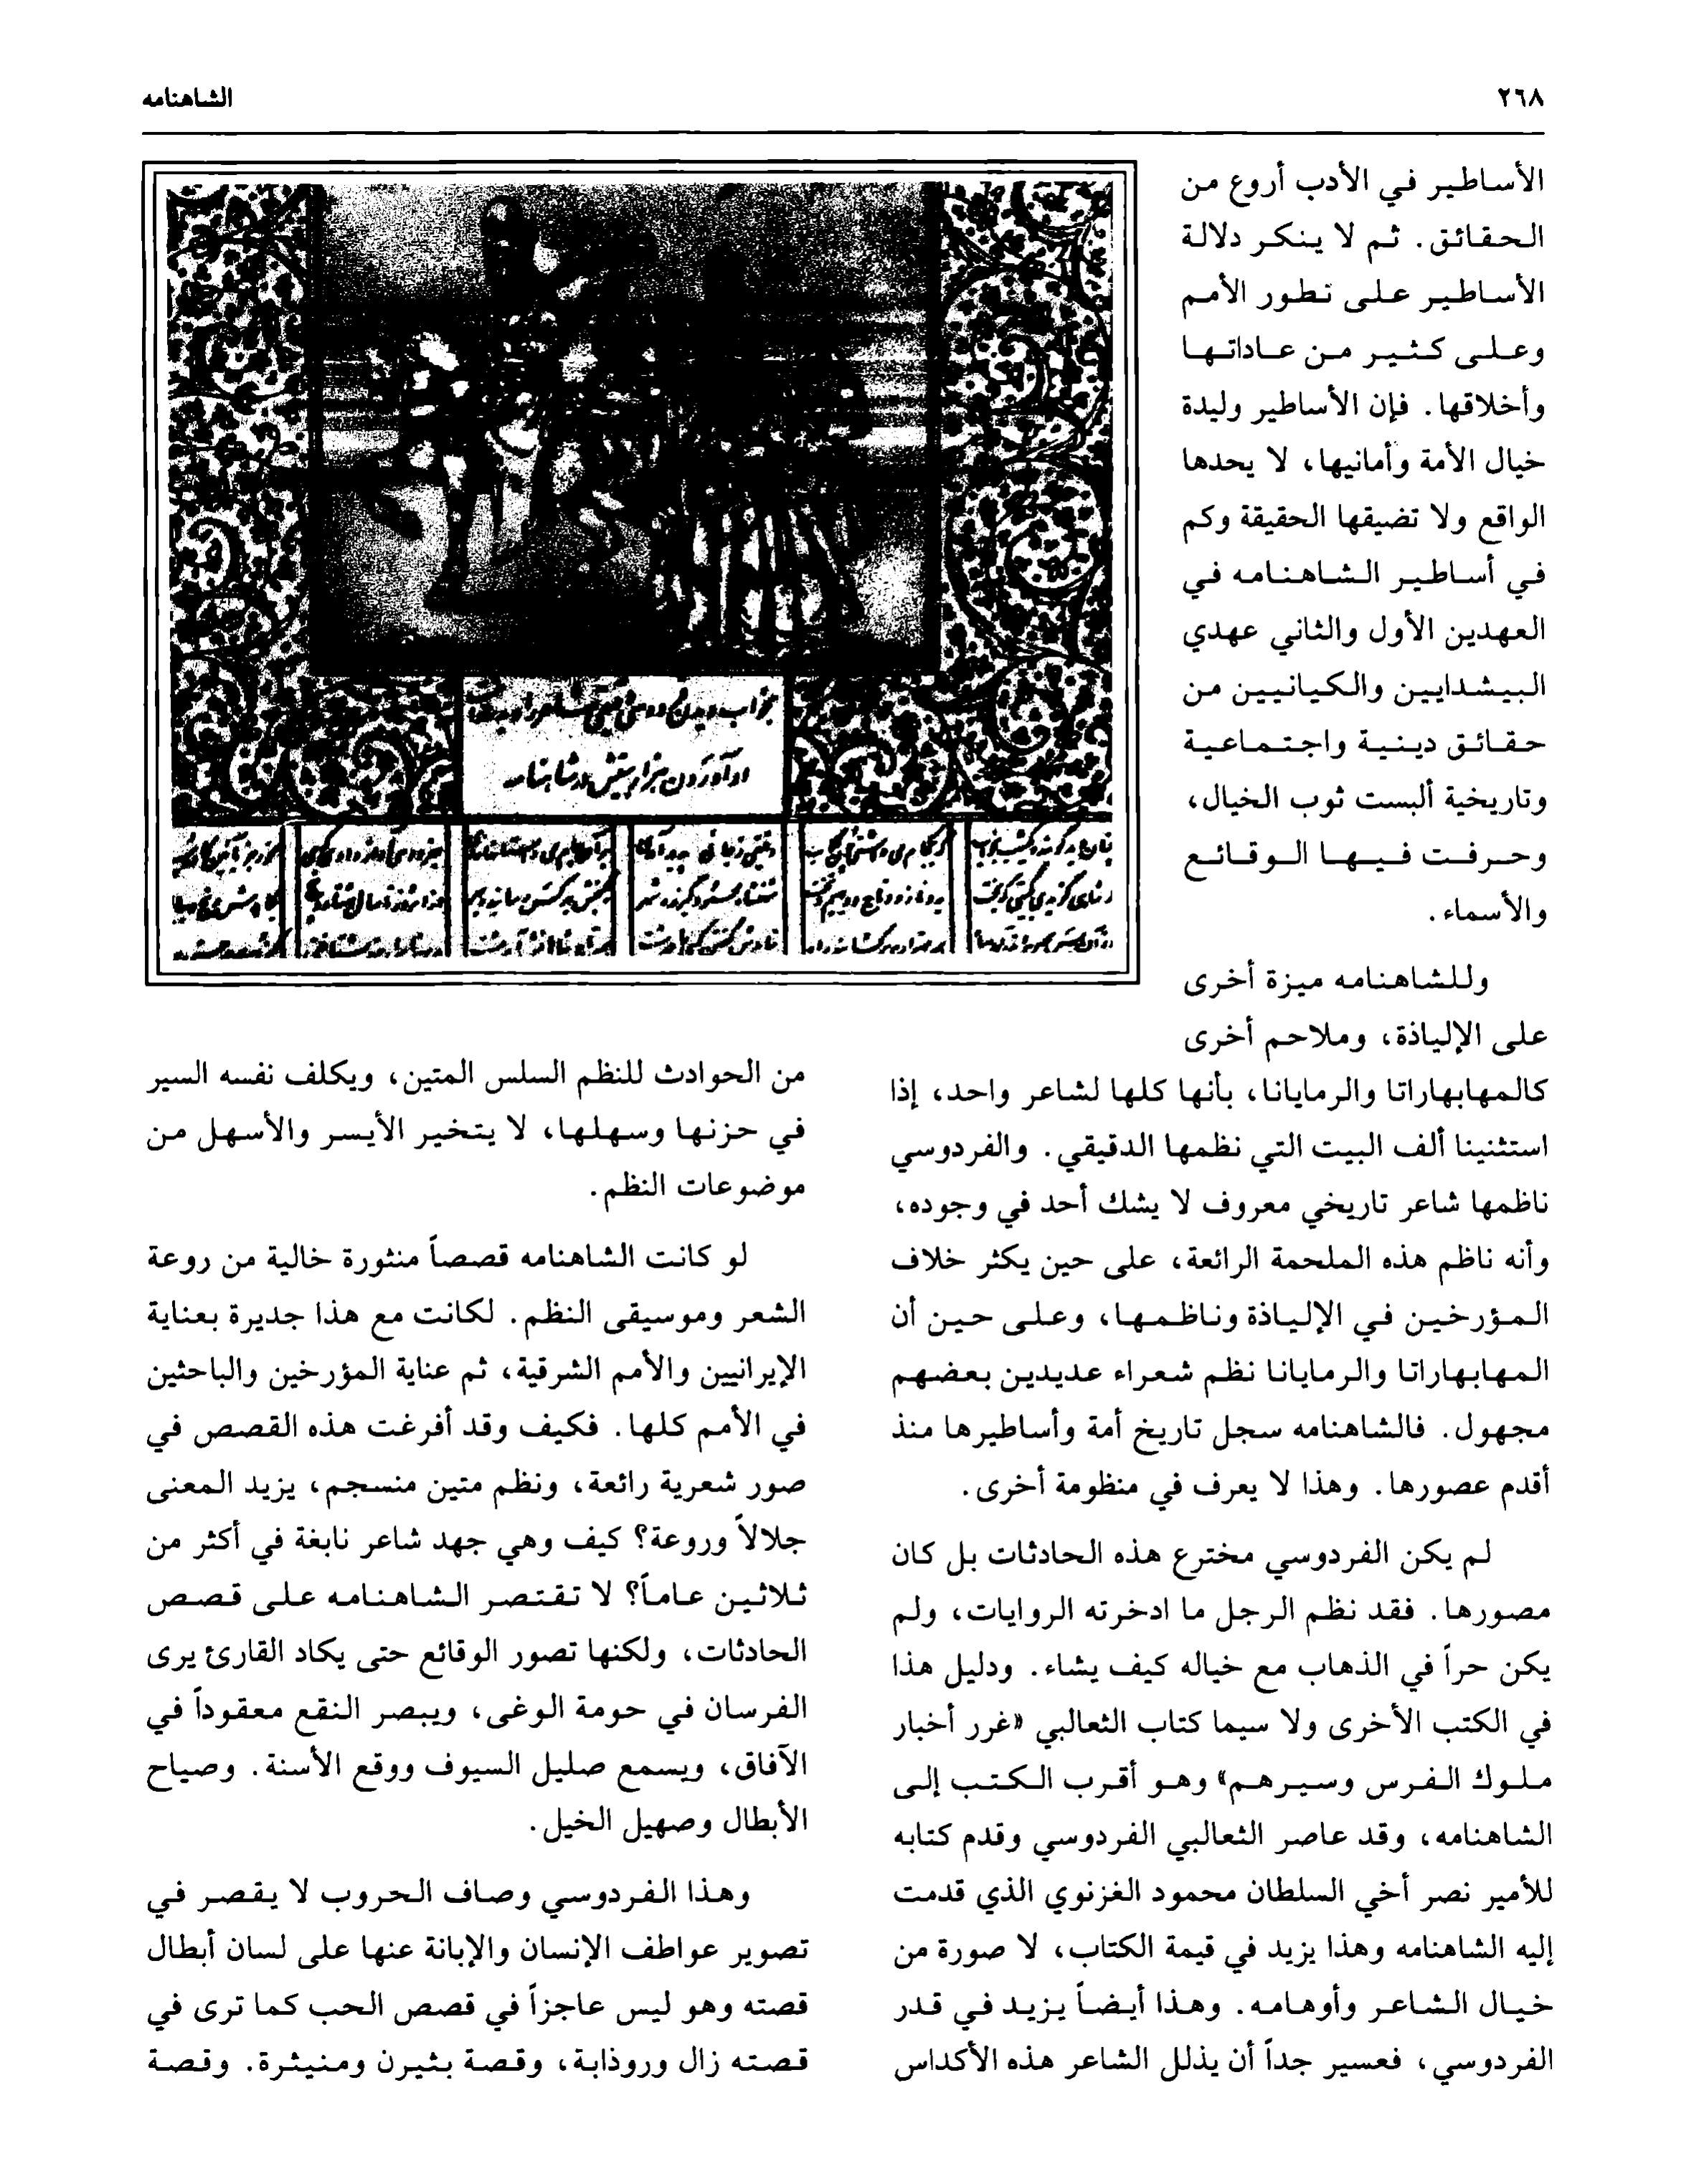 ٢٦٨
الشاهنامه
الأساطير في الأدب أروع من
الحقائق. ثم لا ينكر دلالة
الأساطير على تطور الأمم
وعلى كثير من عاداتها
وأخلاقها. فإن الأساطير وليدة
خيال الأمة وأمانيها، لا يحدها
الواقع ولا تضيقها الحقيقة وكم
في أساطير الشاهنامه في
العهدين الأول والثاني عهدي
البيشدايين والكيانيين من
حقائق دينية واجتماعية
وتاريخية ألبست ثوب الخيال،
وحرفت فيها الوقائع
والأسماء.
وللشاهنامه ميزة أخرى
على الإلياذة، وملاحم أخرى
كالمهابهاراتا والرمايانا، بأنها كلها لشاعر واحد، إذا
استثنينا ألف البيت التي نظمها الدقيقي. والفردوسي
ناظمها شاعر تاريخي معروف لا يشك أحد في وجوده،
وأنه ناظم هذه الملحمة الرائعة، على حين يكثر خلاف
المؤرخين في الإلياذة وناظمها، وعلى حين أن
المهابهاراتا والرمايانا نظم شعراء عديدين بعضهم
مجهول. فالشاهنامه سجل تاريخ أمة وأساطيرها منذ
أقدم عصورها. وهذا لا يعرف في منظومة أخرى.
لم يكن الفردوسي مخترع هذه الحادثات بل كان
مصورها. فقد نظم الرجل ما ادخرته الروايات، ولم
يكن حراً في الذهاب مع خياله كيف يشاء. ودليل هذا
في الكتب الأخرى ولا سيما كتاب الثعالبي «غرر أخبار
ملوك الفرس وسيرهم» وهو أقرب الكتب إلى
الشاهنامه، وقد عاصر الثعالبي الفردوسي وقدم كتابه
للأمير نصر أخي السلطان محمود الغزنوي الذي قدمت
إليه الشاهنامه وهذا يزيد في قيمة الكتاب، لا صورة من
خيال الشاعر وأوهامه. وهذا أيضاً يزيد في قدر
الفردوسي، فعسير جداً أن يذلل الشاعر هذه الأكداس
من الحوادث للنظم السلس المتين، ويكلف نفسه السير
في حزنها وسهلها، لا يتخير الأيسر والأسهل من
موضوعات النظم.
لو كانت الشاهنامه قصصاً منثورة خالية من روعة
الشعر وموسيقى النظم. لكانت مع هذا جديرة بعناية
الإيرانيين والأمم الشرقية، ثم عناية المؤرخين والباحثين
في الأمم كلها. فكيف وقد أفرغت هذه القصص في
صور شعرية رائعة، ونظم متين منسجم، يزيد المعنى
جلالاً وروعة؟ كيف وهي جهد شاعر نابغة في أكثر من
ثلاثين عاماً؟ لا تقتصر الشاهنامه على قصص
الحادثات، ولكنها تصور الوقائع حتى يكاد القارئ يرى
الفرسان في حومة الوغى، ويبصر النقع معقوداً في
الآفاق، ويسمع صليل السيوف ووقع الأسنة. وصياح
الأبطال وصهيل الخيل.
وهذا الفردوسي وصاف الحروب لا يقصر في
تصوير عواطف الإنسان والإبانة عنها على لسان أبطال
قصته وهو ليس عاجزاً في قصص الحب كما ترى في
قصته زال وروذابة، وقصة بثيرن ومنيثرة. وقصة